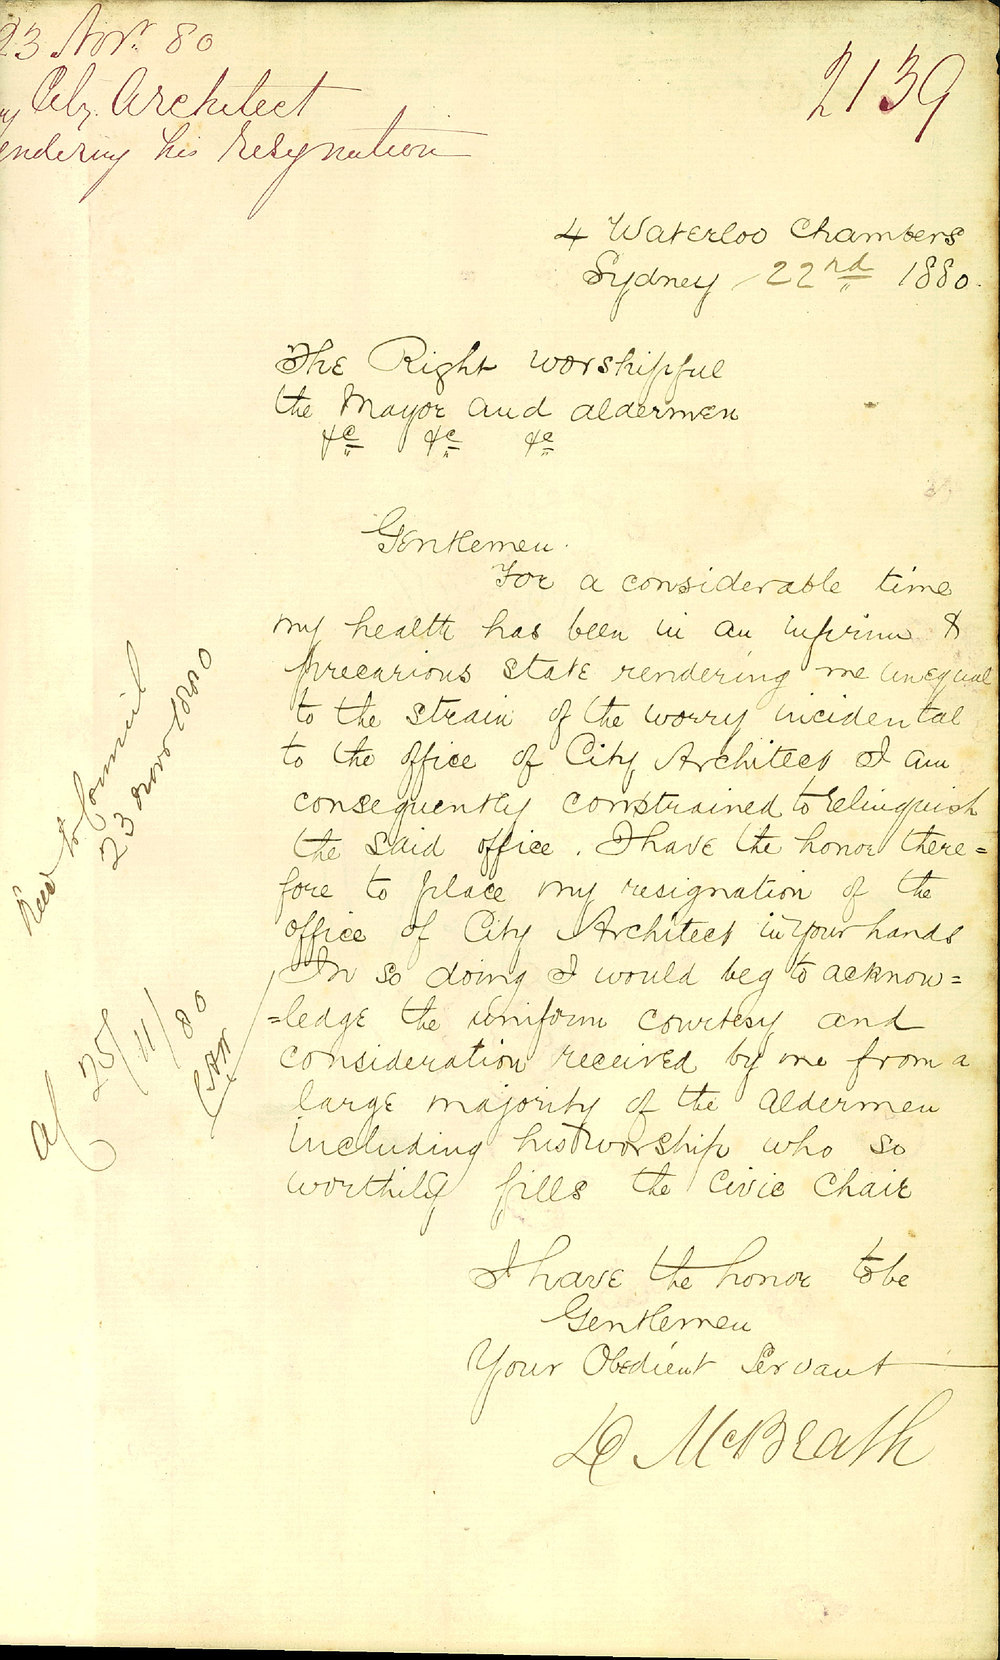 23 Nov. 80
City Architect
endering his resignation
2139
4 Waterloo Chambers
Sydney 22nd 1880.
The Right worshipful
the Mayor and aldermen
&c &c &c
Gentlemen.
For a considerable time
my health has been in an infirm &
precarious state rendering me unequal
to the strain of the worry incidental
to the office of City Architect I am
consequently constrained to relinquish
the said office. I have the honor there=
fore to place my resignation of the
office of City Architect in your hands
In so doing I would beg to acknow=
=ledge the uniform courtesy and
consideration received by me from a
large majority of the aldermen
including his worship who so
worthily fills the civic chair
I have the honor to be
Gentlemen
Your Obedient Servant
D McBeath
to Council
23 1880
25/11/80